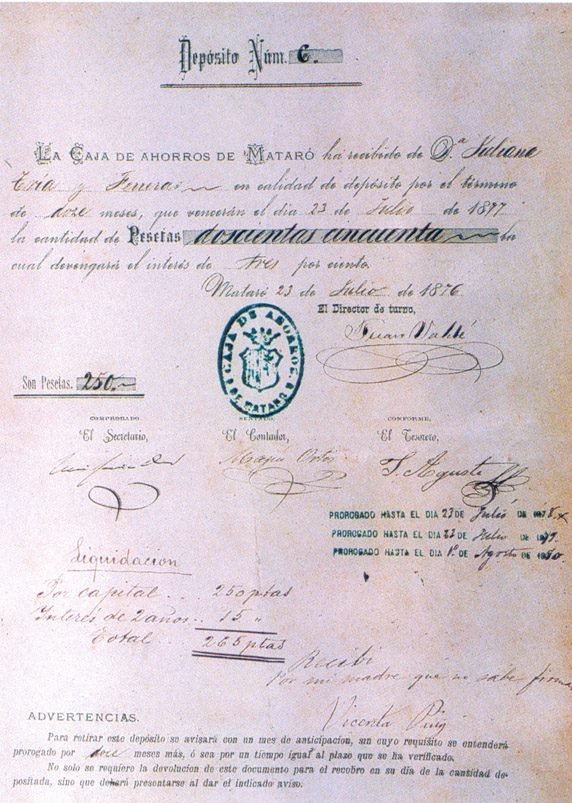 Depósito Núm. 6.
LA CAJA DE AHORROS DE MATARÓ ha recibido de D.ª Juliana
y en calidad de depósito por el término
de doze meses, que vencerán el dia 23 de Julio de 1877
la cantidad de Pesetas doscientas cincuenta la
cual devengará el interés de tres por ciento.
Mataró 23 de Julio de 1876
El Director de turno,
Juan
CAJA DE AHORROS DE MATARO
Son Pesetas. 250.
COMPROBADO.
El Secretario,
SENTADO.
El Contador,
CONFORME.
El Tesorero,
PROROGADO HASTA EL DIA 23 DE Julió DE 1878.
PROROGADO HASTA EL DIA 23 DE Julio DE 1879.
PROROGADO HASTA EL DIA 1º de Agosto DE 1880.
Liquidacion
Por capital . . 250 ptas
Interés de 2 años . . 15 "
Total . . . 265 ptas
Recibi
Por mi madre que no sabe firmar
Vicenta Puig
ADVERTENCIAS.
Para retirar este depósito se avisará con un mes de anticipacion, sin cuyo requisito se entenderá
prorogado por doze meses más, ó sea por un tiempo igual al plazo que se ha verificado.
No solo se requiere la devolucion de este documento para el recobro en su dia de la cantidad de-
positada, sino que deberá presentarse al dar el indicado aviso.